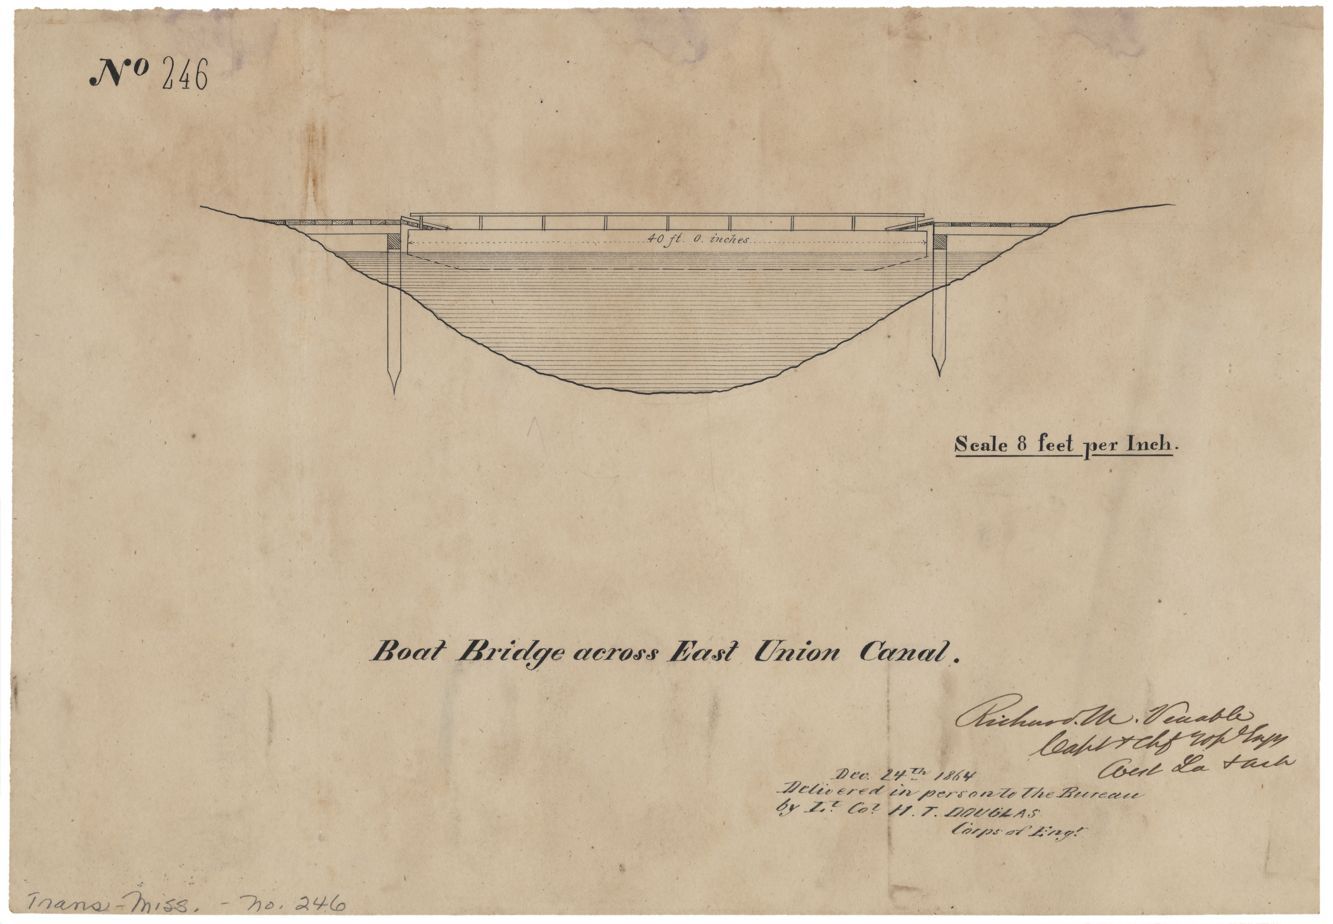 No 246
40 ft. 0. inches
Scale 8 feet per Inch.
Boat Bridge across East Union Canal.
Richard M. Venable
Capt & Chf Topl Engs
West La & Ark
Dec. 24th 1864
Delivered in person to the Bureau
by Lt Col H. T. DOUGLAS
Corps of Engs
Trans-Miss. - No. 246